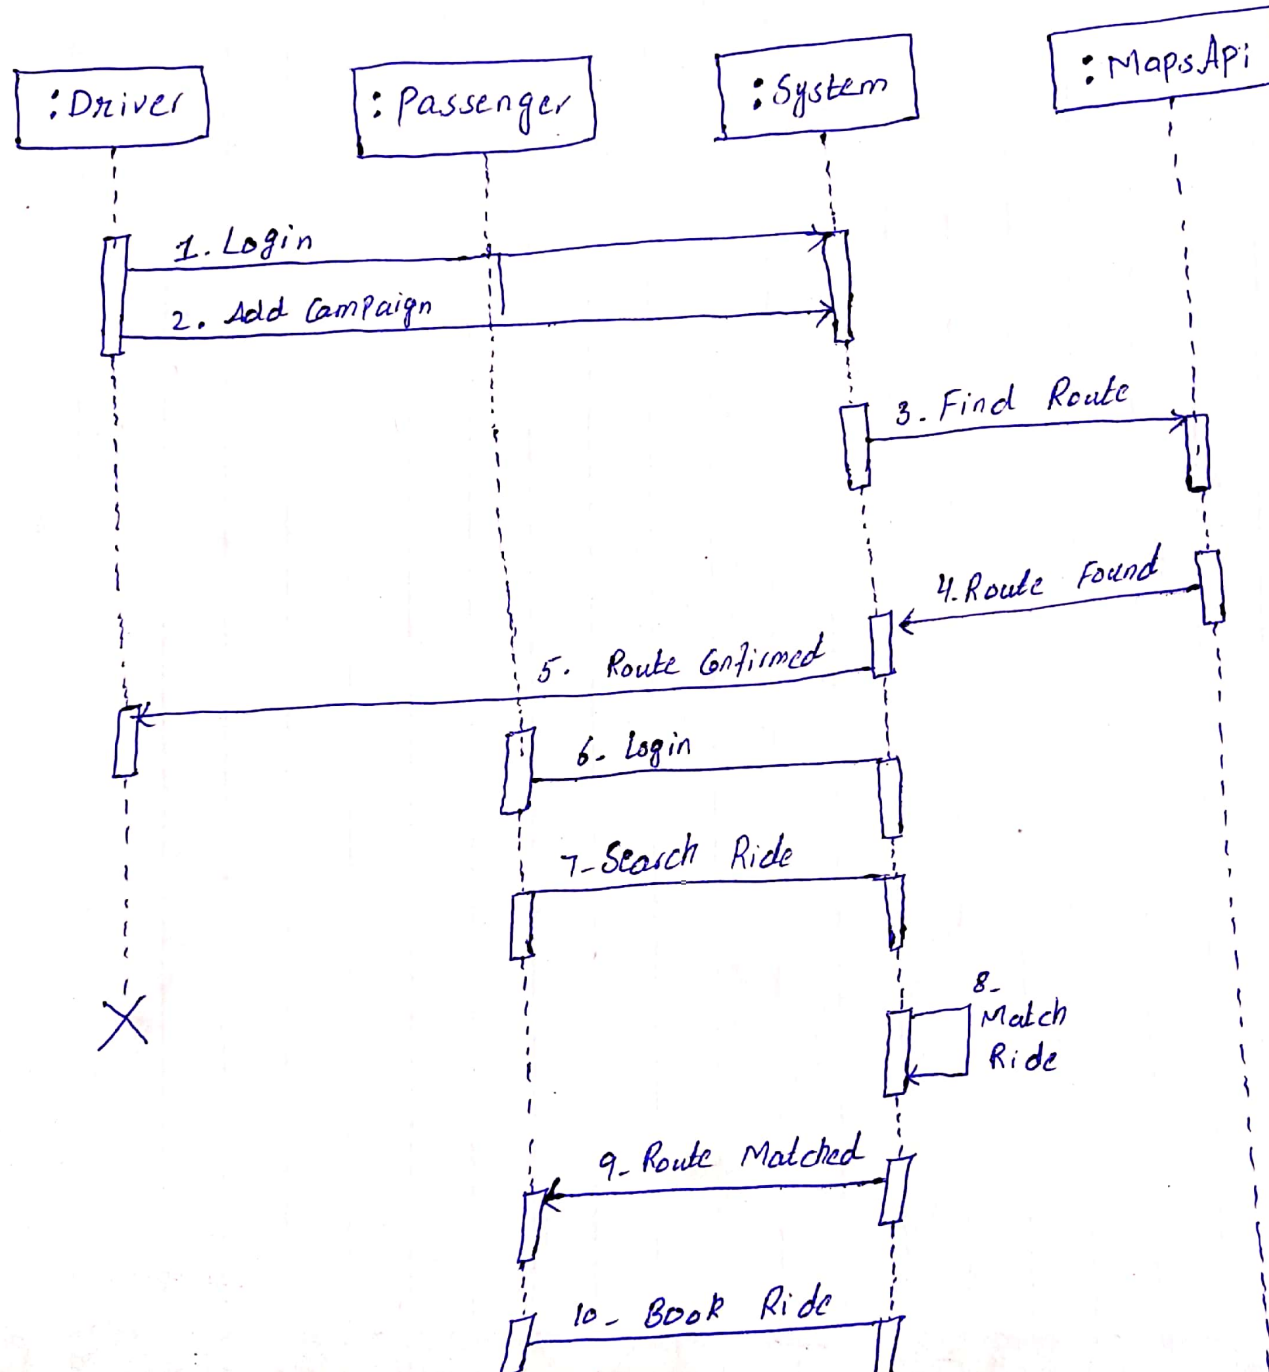 :Driver
:Passenger
:System
:MapsApi
1. Login
2. Add Campaign
3- Find Route
4-Route Found
5. Route Confirmed
6- Login
7-Search Ride
8-
Match
Ride
9- Route Matched
10- Book Ride